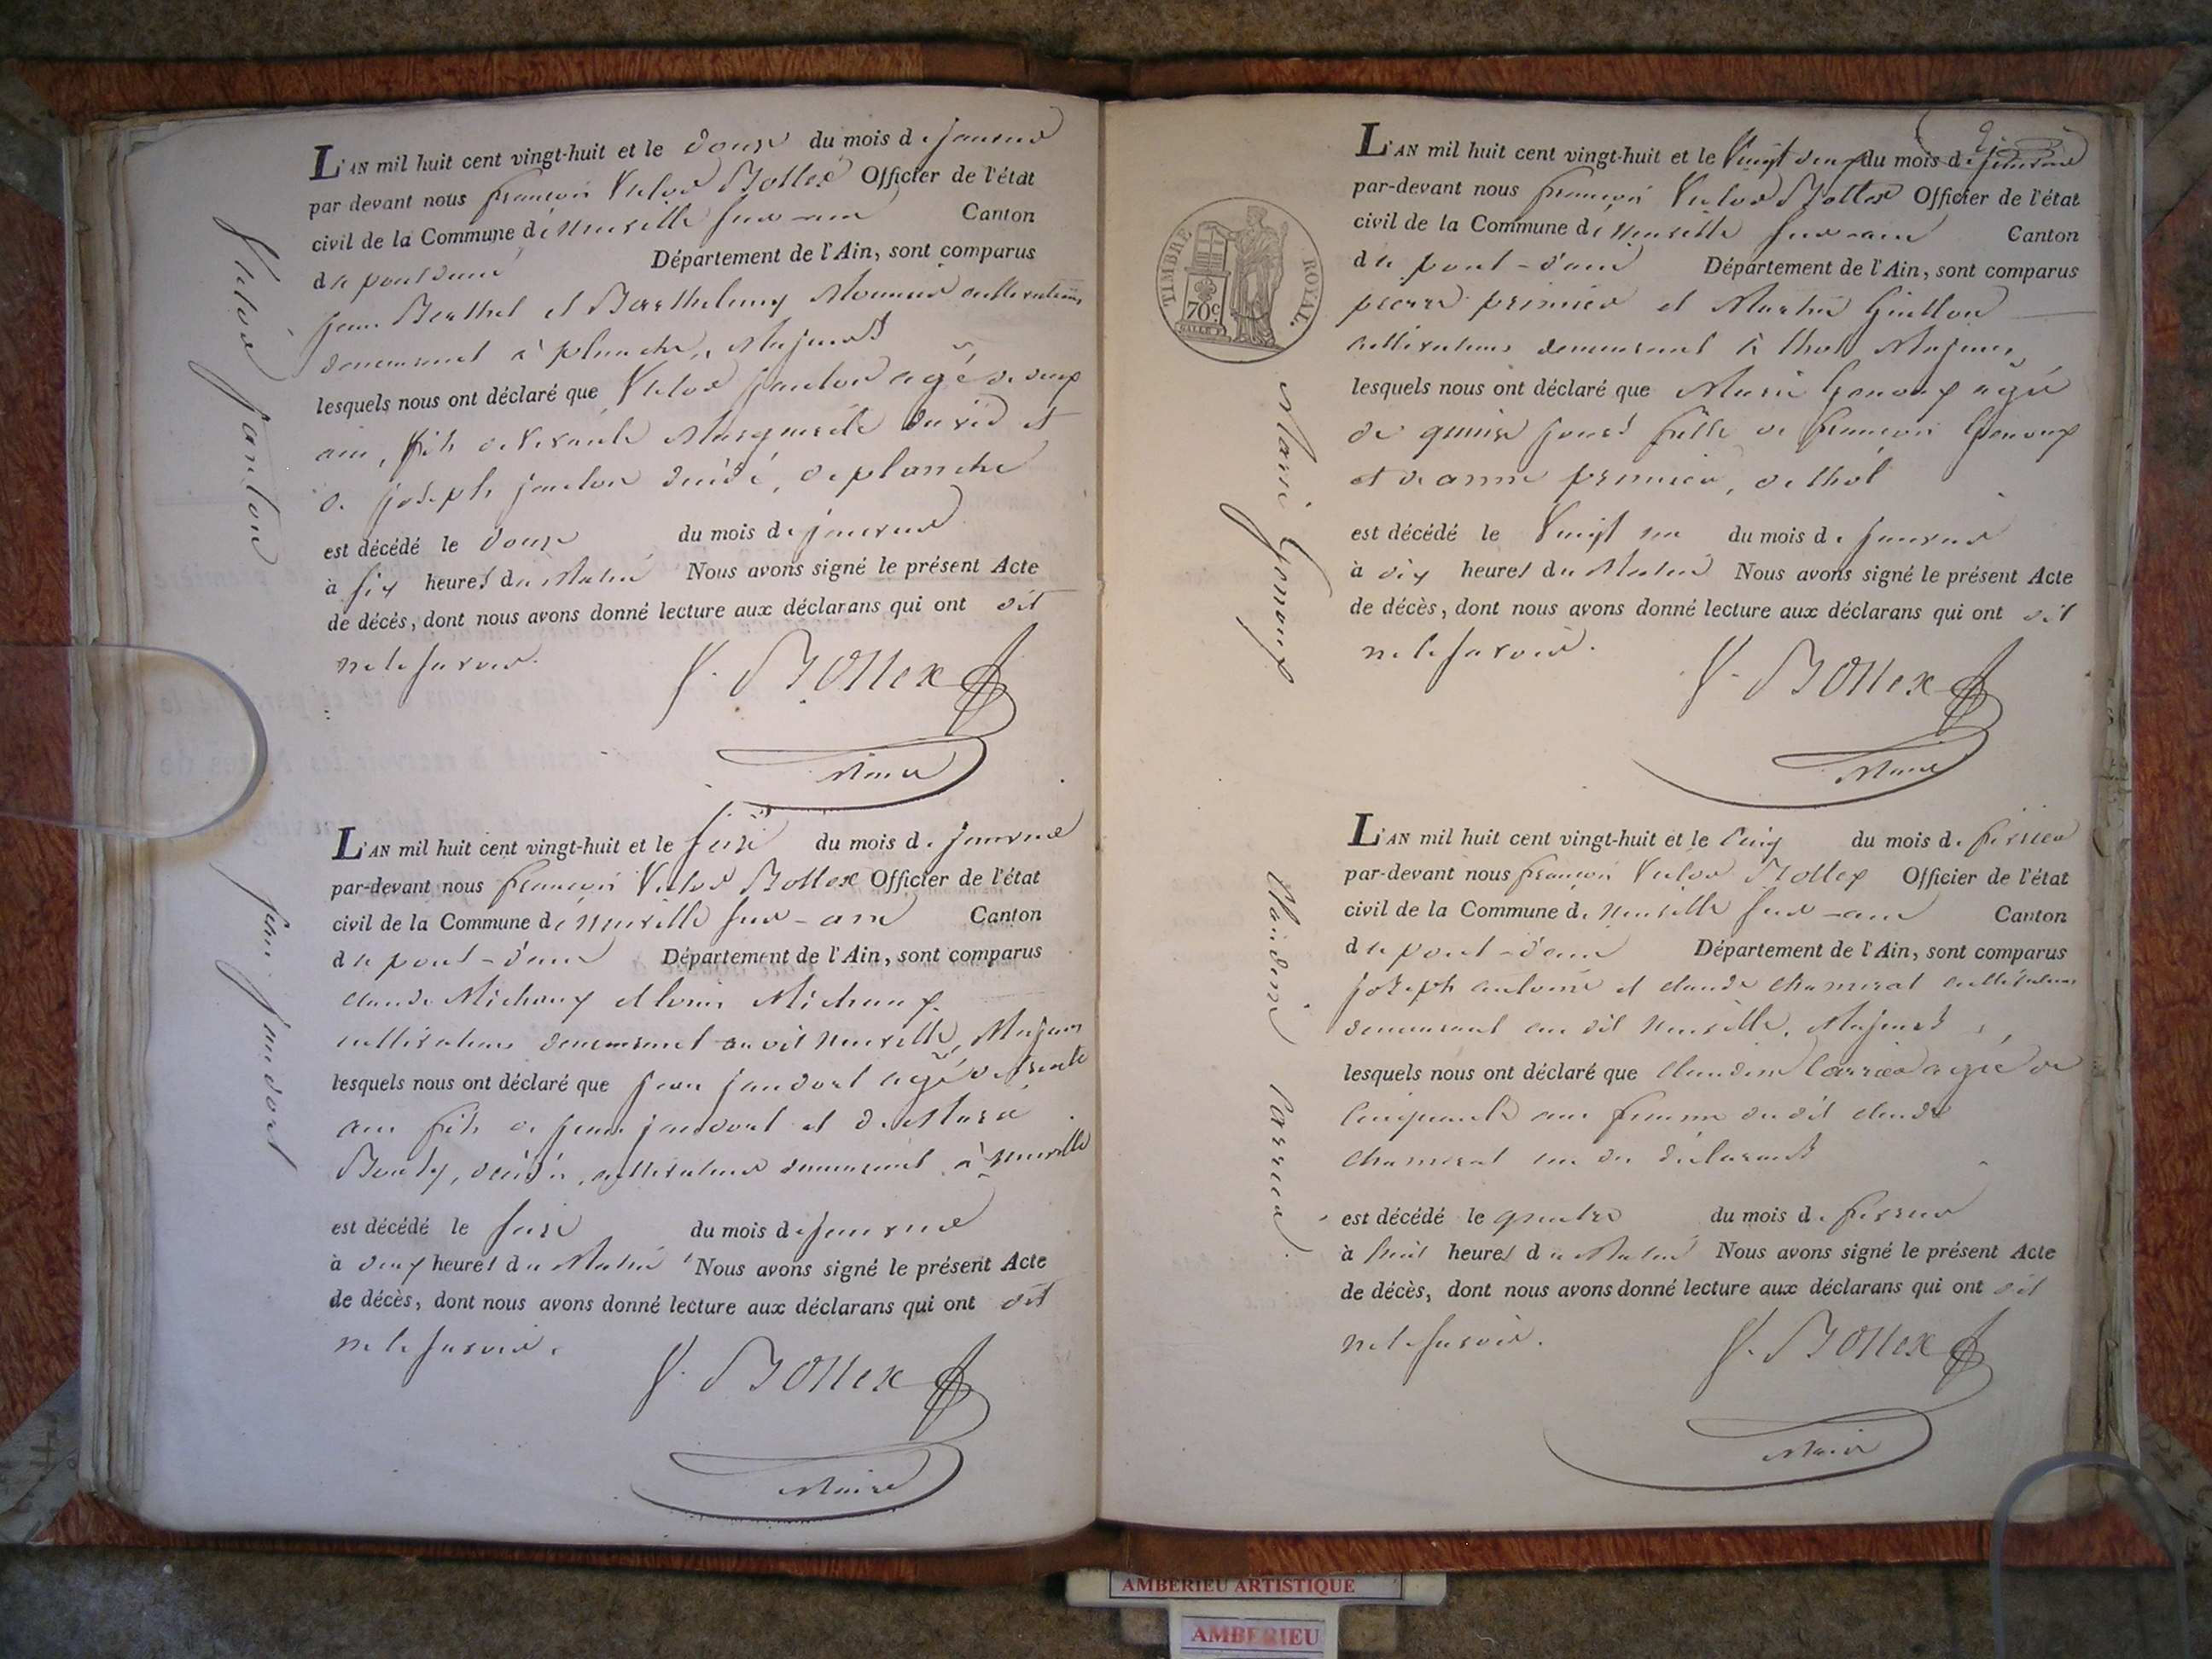 L'AN mil huit cent vingt-huit et le douze du mois de janvier
par devant nous françois Victor Bollex Officier de l'état
civil de la Commune de neuville sur-ain Canton
de pont d'ain Département de l'Ain, sont comparus
jean Berthet et Barthelemy Monnier cultivateurs
demeurant à planche, Majeurs
lesquels nous ont déclaré que Victor janton agé de deux
ans, fils de vivante Marguerite et
de joseph janton décédé, de planche
est décédé le douze du mois de janvier
à six heures du Matin Nous avons signé le présent Acte
de décés, dont nous avons donné lecture aux déclarans qui ont dit
ne le savoir.
V. Bollex
Maire
Victor janton
L'AN mil huit cent vingt-huit et le seize du mois de janvier
par-devant nous françois Victor Bollex Officier de l'état
civil de la Commune de neuville sur-ain Canton
de pont-d'ain Département de l'Ain, sont comparus
claude Michaux et louis Michaux
cultivateurs demeurant au dit neuville, Majeurs
lesquels nous ont déclaré que jean jandort agé de trente
ans fils de jean jandort et de Marie
décédés, cultivateur demeurant à neuville
est décédé le seize du mois de janvier
à deux heures du Matin Nous avons signé le présent Acte
de décès, dont nous avons donné lecture aux déclarans qui ont dit
ne le savoir.
V. Bollex
Maire
jean jandort
TIMBRE ROYAL.
70 c.
L'AN mil huit cent vingt-huit et le Vingt deux du mois de janvier
par-devant nous françois Victor Bollex Officier de l'état
civil de la Commune de neuville sur-ain Canton
de pont-d'ain Département de l'Ain, sont comparus
pierre prunier et Martin Guillon
cultivateurs demeurant à thol, Majeurs,
lesquels nous ont déclaré que Marie Genoux agée
de quinze jours fille de françois Genoux
et de anne prunier, de thol
est décédé le Vingt un du mois de janvier
à dix heures du Matin Nous avons signé le présent Acte
de décès, dont nous avons donné lecture aux déclarans qui ont dit
ne le savoir.
V. Bollex
Maire
Marie Genoux
L'AN mil huit cent vingt-huit et le Cinq du mois de fevrier
par-devant nous françois Victor Bollex Officier de l'état
civil de la Commune de neuville sur-ain Canton
de pont-d'ain Département de l'Ain, sont comparus
joseph antoine et claude chamerat cultivateurs
demeurant au dit neuville, Majeurs,
lesquels nous ont déclaré que claudine Carrier agée de
cinquante ans femme du dit claude
chamerat un des déclarants
est décédé le quatre du mois de fevrier
à huit heures du Matin Nous avons signé le présent Acte
de décès, dont nous avons donné lecture aux déclarans qui ont dit
ne le savoir.
V. Bollex
Maire
Claudine Carrier
AMBERIEU ARTISTIQUE
AMBERIEU